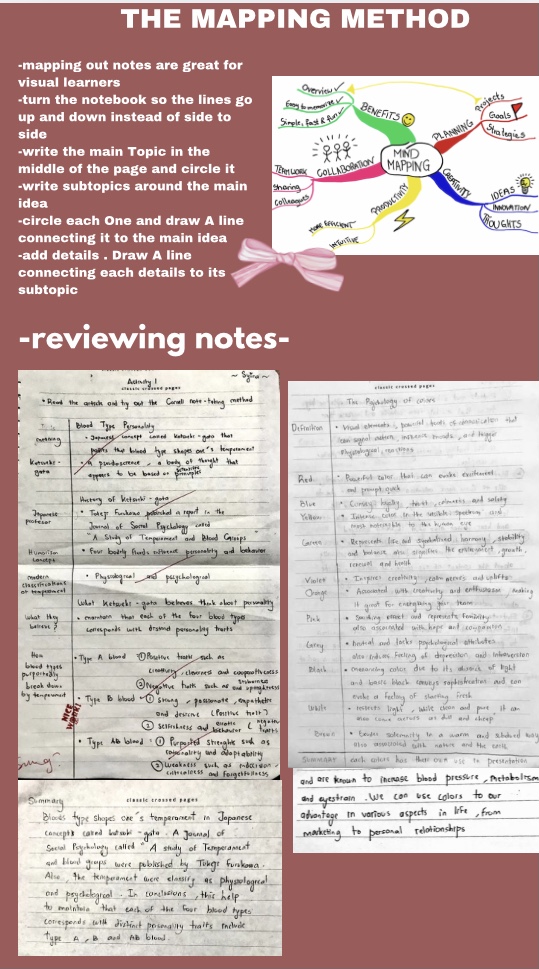 THE MAPPING METHOD
-mapping out notes are great for
visual learners
-turn the notebook so the lines go
up and down instead of side to
side
-write the main Topic in the
middle of the page and circle it
-write subtopics around the main
idea
-circle each One and draw A line
connecting it to the main idea
-add details . Draw A line
connecting each details to its
subtopic
Overview
Easy to memorize
Simple, Fast & Fun
BENEFITS
TEAMWORK
Sharing
Colleagues
COLLABORATION
MIND
MAPPING
PLANNING
Projects
Goals
Strategies
CREATIVITY
IDEAS
INNOVATION
THOUGHTS
PRODUCTIVITY
MORE EFFICIENT
INTUITIVE
-reviewing notes-
Activity 1
classic crossed pages
• Read the article and try out the Cornell note-taking method
Blood Type Personality
meaning
• Japanese concept called Ketsueki-gata that
points that blood type shapes one's temperament
Ketsueki-
gata
• a pseudoscience, a body of thought that
appears to be based on scientific principles
History of Ketsueki-gata
Japanese
professor
• Tokeji Furukawa published a report in the
Journal of Social Psychology called
"A Study of Temperament and Blood Groups"
• Four bodily fluids influence personality and behavior
modern
classifications
of temperament
• Physiological and psychological
What Ketsueki-gata believes think about personality
What they
believe?
• maintain that each of the four blood types
corresponds with distinct personality traits
How
blood types
purportedly
break down
by temperament
• Type A blood ① Positive traits such as
② Negative traits such as
• Type B blood ① Strong, passionate, empathetic
and desire (Positive trait)
② Selfishness and behavior
NICE
WORK!
• Type AB blood ① Purported strengths such as
rationality and adaptability
② Weakness such as indecision,
criticalness and forgetfulness
Summary
classic crossed pages
Bloods type shapes one's temperament in Japanese
concept called ketsueki-gata. A Journal of
Social Psychology called "A study of Temperament
and blood groups were published by Tokeji Furukawa.
Also, the temperament were classify as physiological
and psychological. In conclusions, this help
to maintain that each of the four blood types
corresponds with distinct personality traits include
type A, B and AB blood.
classic crossed pages
The Psychology of colors
Definition
• Visual elements, powerful tools of communication that
can signal action, influence moods, and trigger
physiological reactions
Red
• Powerful color that can evoke excitement
Blue
• loyalty, trust, calmness and safety
Yellow
• Intense color in the visible spectrum and
most noticeable to the human eye
Green
• Represents life and symbolized harmony, stability
and balance, also signifies the environment, growth,
renewal and health
Violet
• Inspires creativity, calm nerves and uplifts
Orange
• Associated with creativity and enthusiasm making
it great for energizing your team
Pink
also associated with hope and compassion
Grey
• Neutral and lacks psychological attributes
also indicates feeling of depression and introversion
Black
• due to its absence of light
and basic black conveys sophistication and can
evoke a feeling of starting fresh
White
• reflects light, While clean and pure it can
also come across as dull and cheap
Brown
• Evokes solemnity in a warm and subdued way
also associated with nature and the earth
Summary each colors has their own use in presentation
and are known to increase blood pressure, metabolism
and eyestrain. We can use colors to our
advantage in various aspects in life, from
marketing to personal relationships